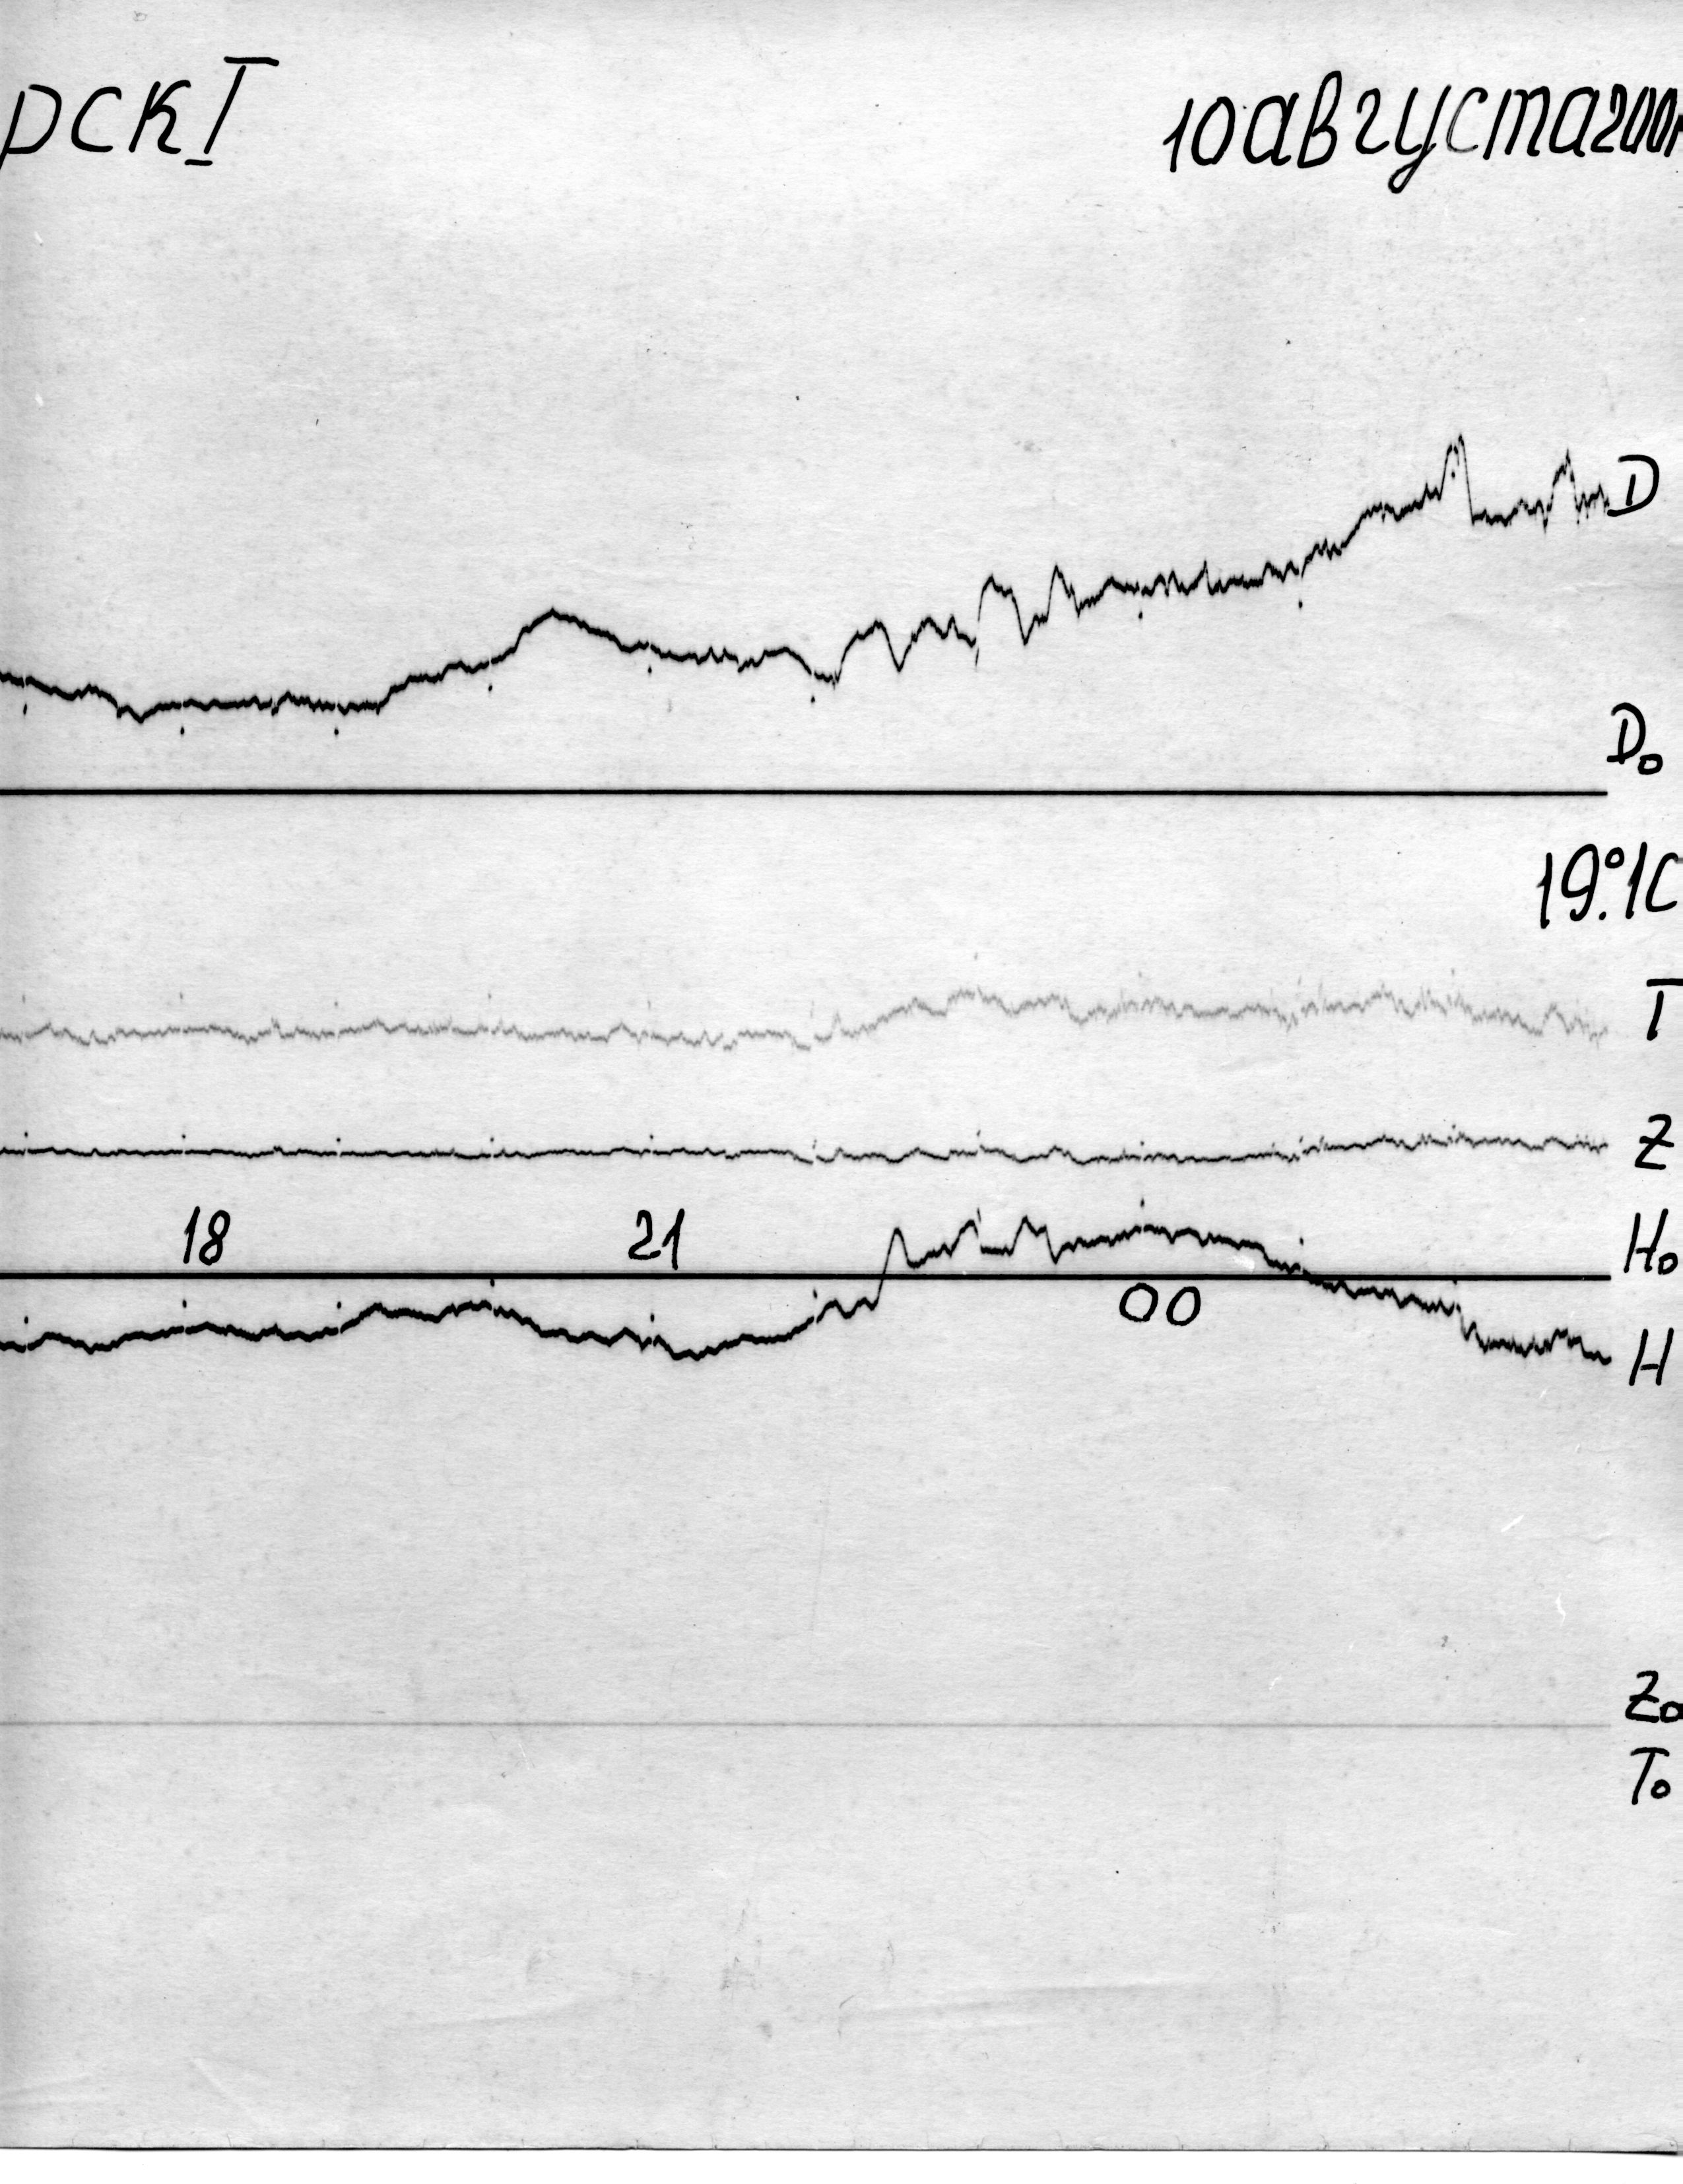 рск I 10 августа 200
D
D₀
19.°1C
T
Z
18 21 H₀
00
H
Z₀
T₀